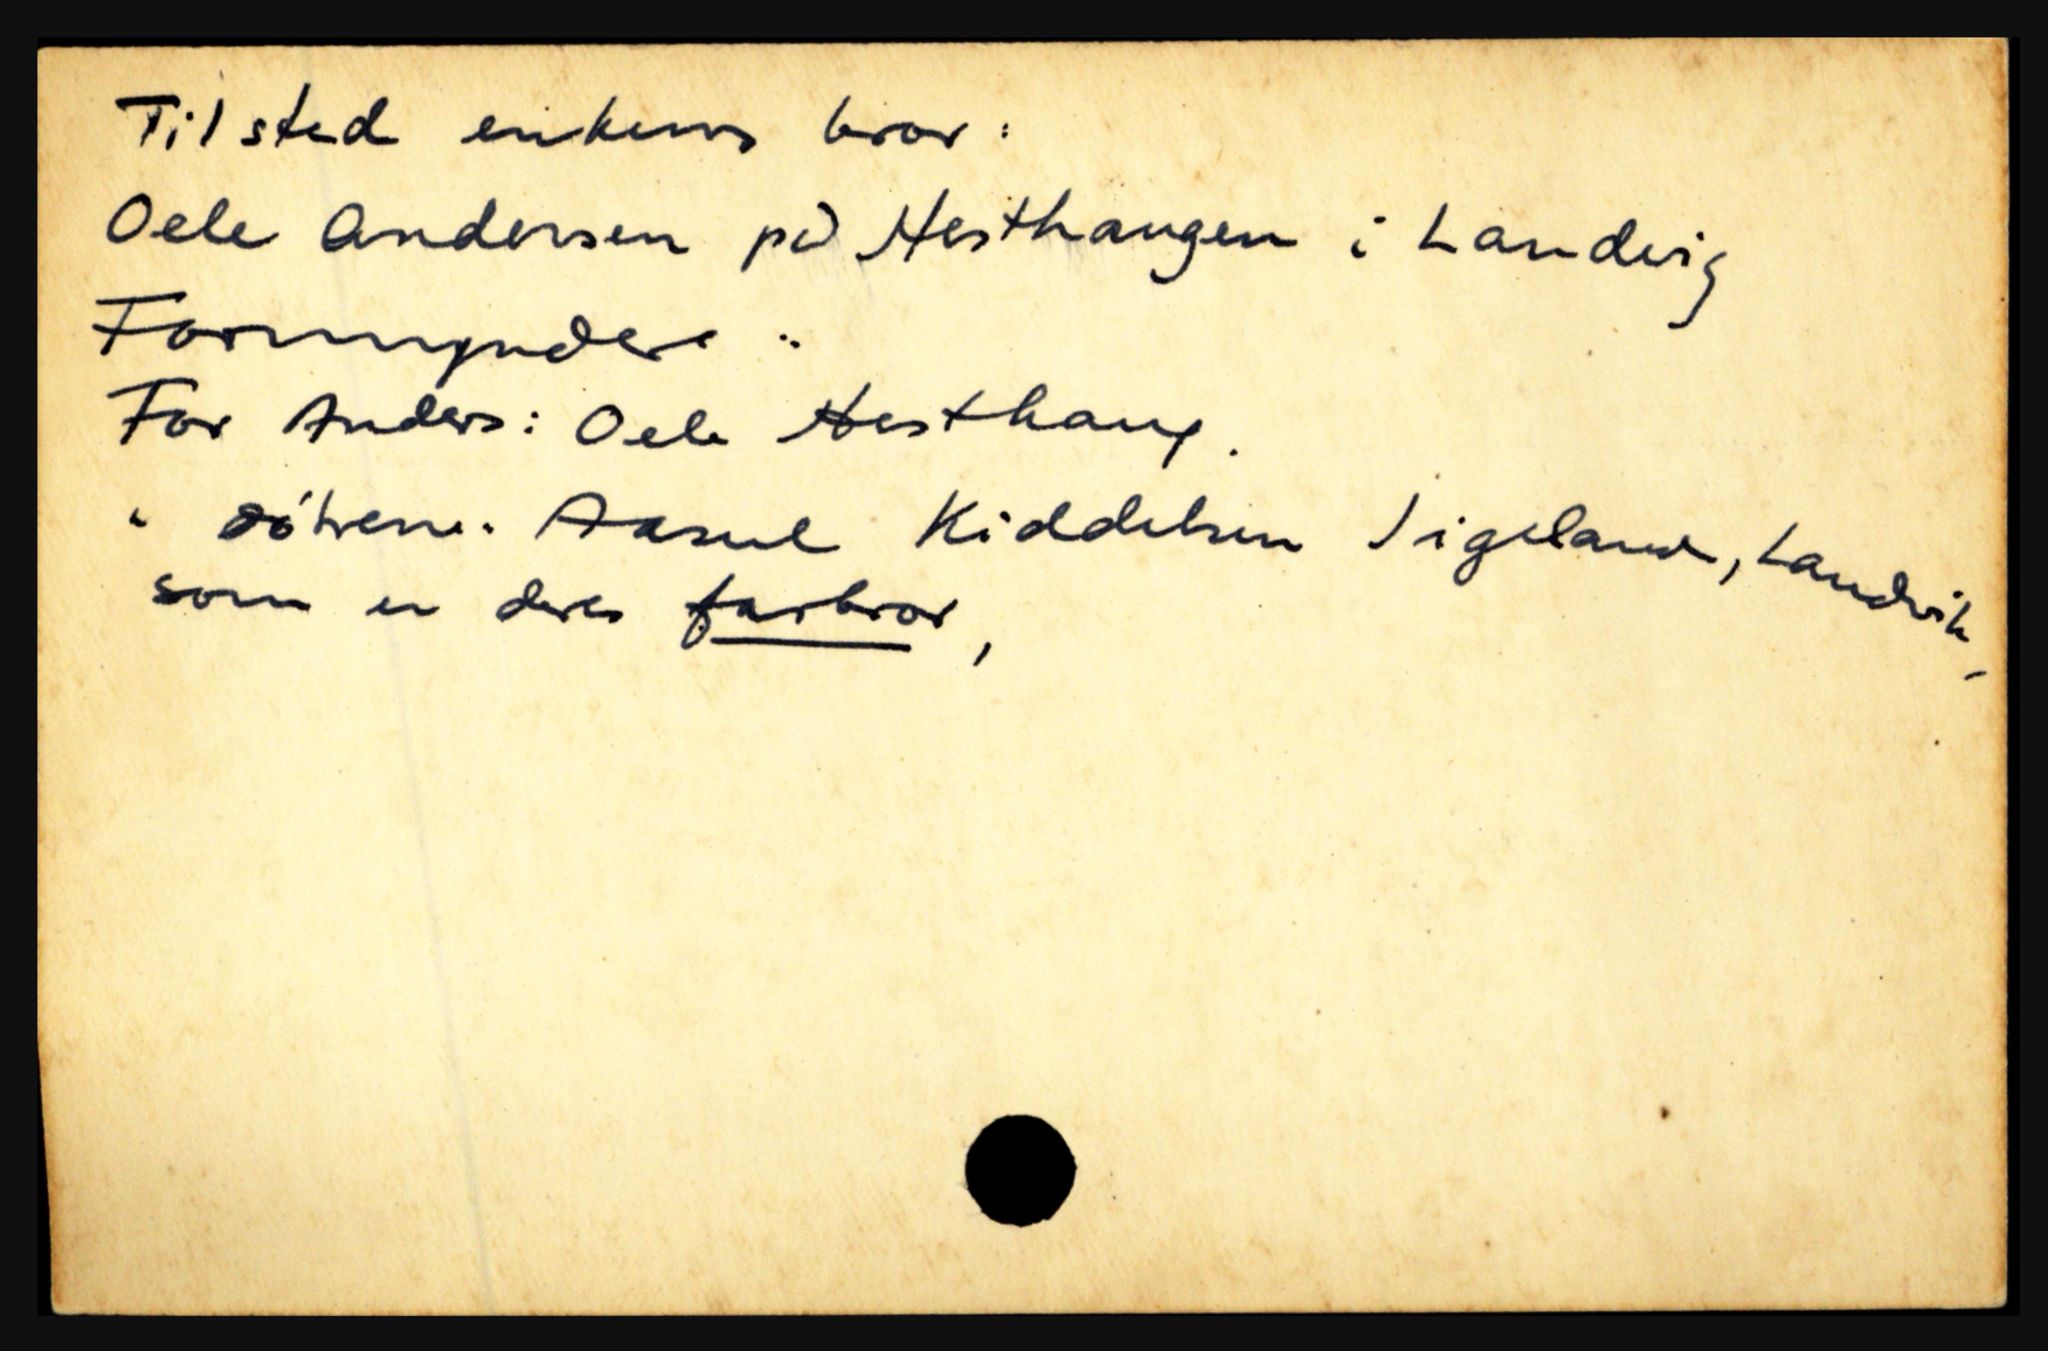 Til sted enkens bror:
Oele Andersen på Hesthaugen i Landvig
Formyndere:
For Anders: Oele Hesthaug.
" døtrene: Aasul Kiddelsen Sigeland, Landvik,
som er deres farbror,